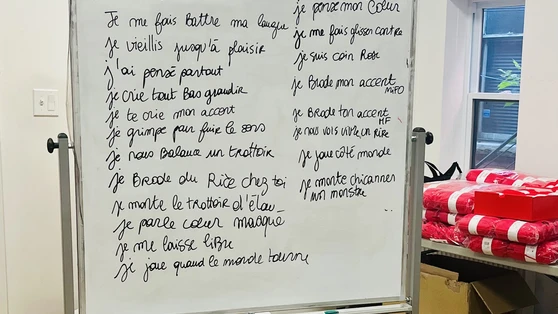 Je me fais Battre ma langue
je vieillis jusqu'à plaisir
j'ai pensé partout
je crie tout Bas grandir
je te crie mon accent
je grimpe par fuir le sens
je nous Balance un trottoir
je Brode du Rire chez toi
je monte le trottoir d'
je parle cœur masque
je me laisse libre
je joue quand le monde tourne
je pense mon Cœur
je me fais glisser contre
je suis coin Rose
je Brode mon accent
MIPO
je Brode ton accent
MF
je nous vois vivre un rire
je joue côté monde
je monte chicanner
mon monstre